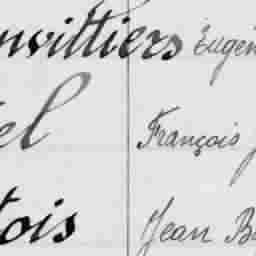 nvilliers Eugén
el François J
tois Jean B